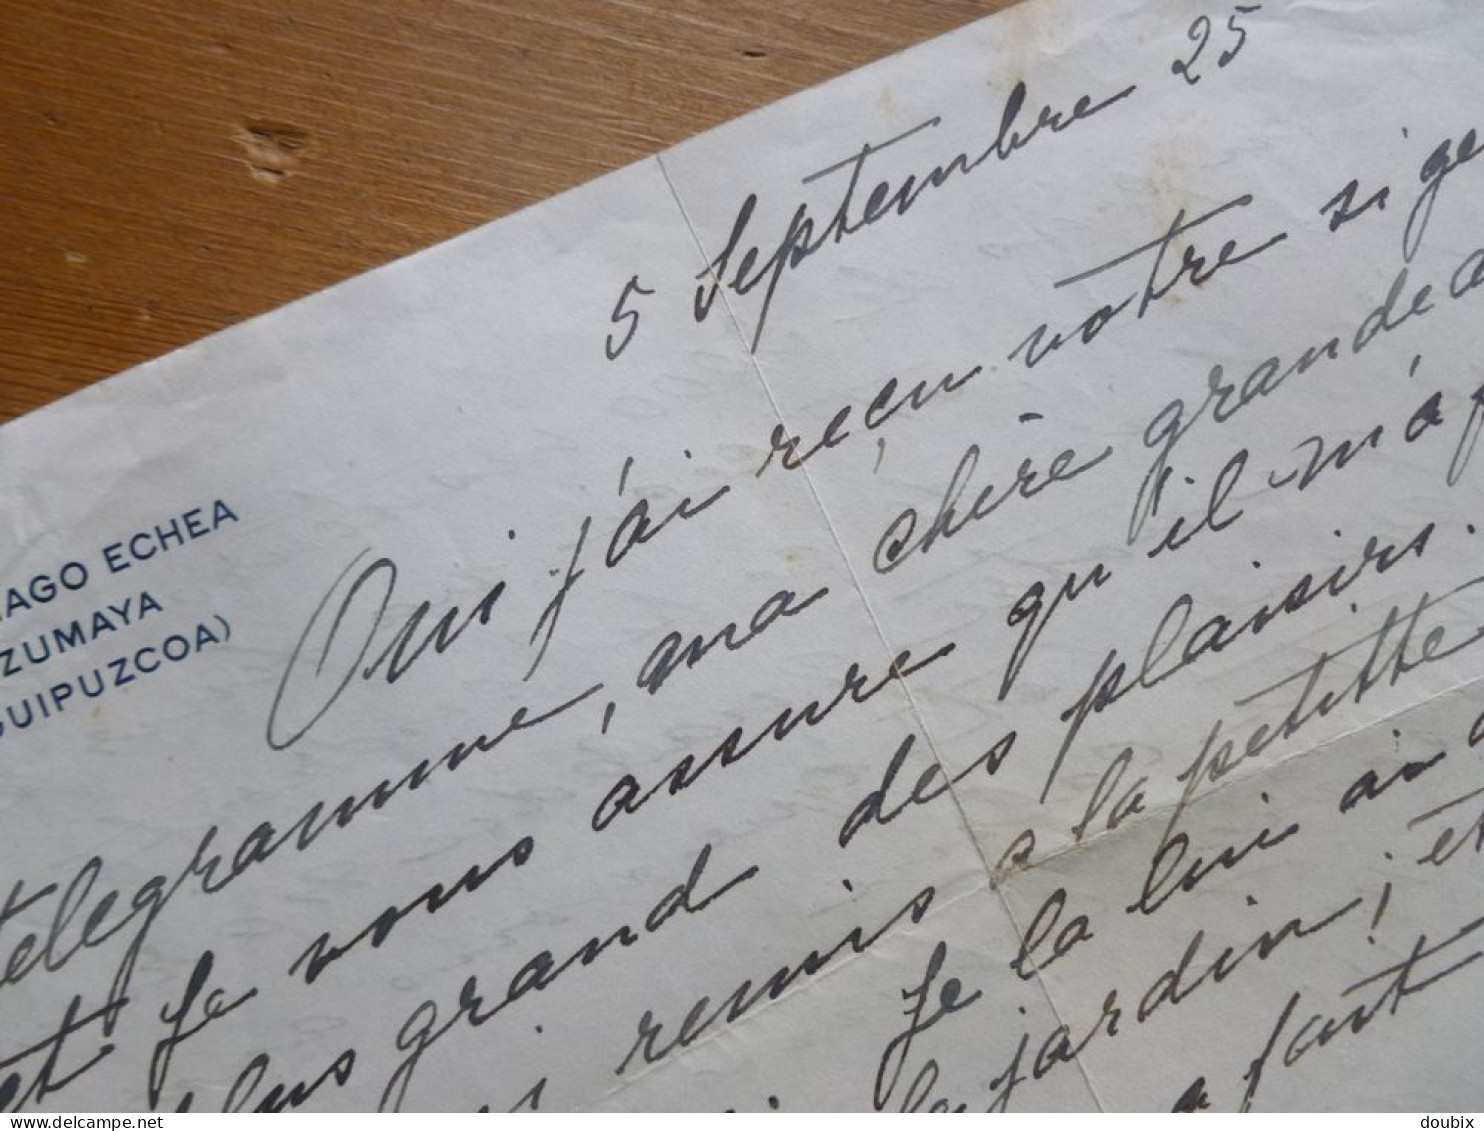 5 Septembre 25
IAGO ECHEA
ZUMAYA
GUIPUZCOA)
Oui j'ai reçu votre si ge
telegramme, ma chère grande a
et je vous assure qu'il m'a f
plus grand des plaisirs.
remis a la petitte
Je la lui ai
jardin, et
a fait
delcampe.net
doubix